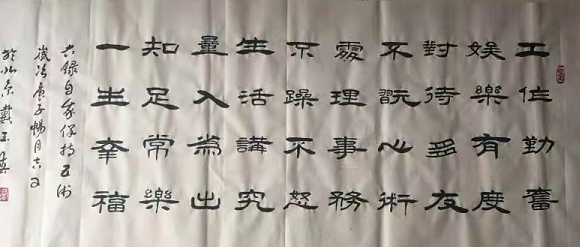 工作勤奮
娛樂有度
對待朋友
不翫心術
處理事務
不躁不怒
生活講究
量入為出
知足常樂
一生幸福
錄自家保持五術
歲次庚子暢月吉日
於北京戴玉